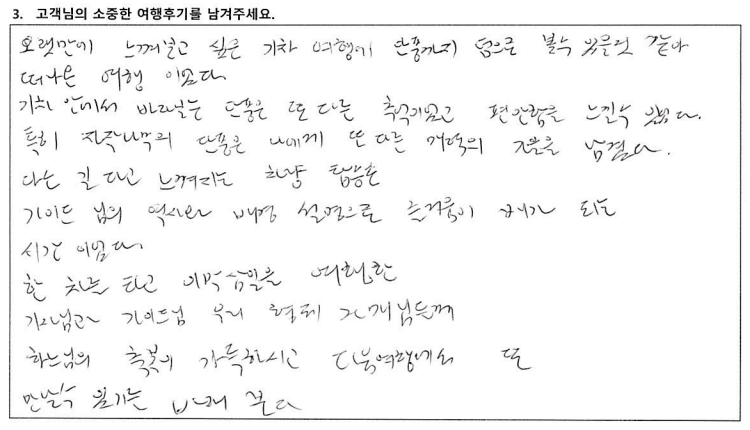 3. 고객님의 소중한 여행후기를 남겨주세요.
오랫만에 느껴보고 싶은 기차 여행에 단풍까지 덤으로 볼수 있을것 같아
떠나온 여행 이였다.
기차 안에서 바라보는 단풍은 또 다른 추억이였고 편안함을 느낄수 있었다.
특히 자작나무의 단풍은 나에게 또 다른 기억의 선물을 남겼다.
다소 길다고 느껴지는 차량 탑승은
가이드 님의 역사와 배경 설명으로 즐거움이 배가 되는
시간 이였다.
한 차를 타고 이박삼일을 여행한
기사님과 가이드님 우리 형제 자매님들께
하느님의 축복이 가득하시고 다음여행에서 또
만날수 있기를 바래 본다